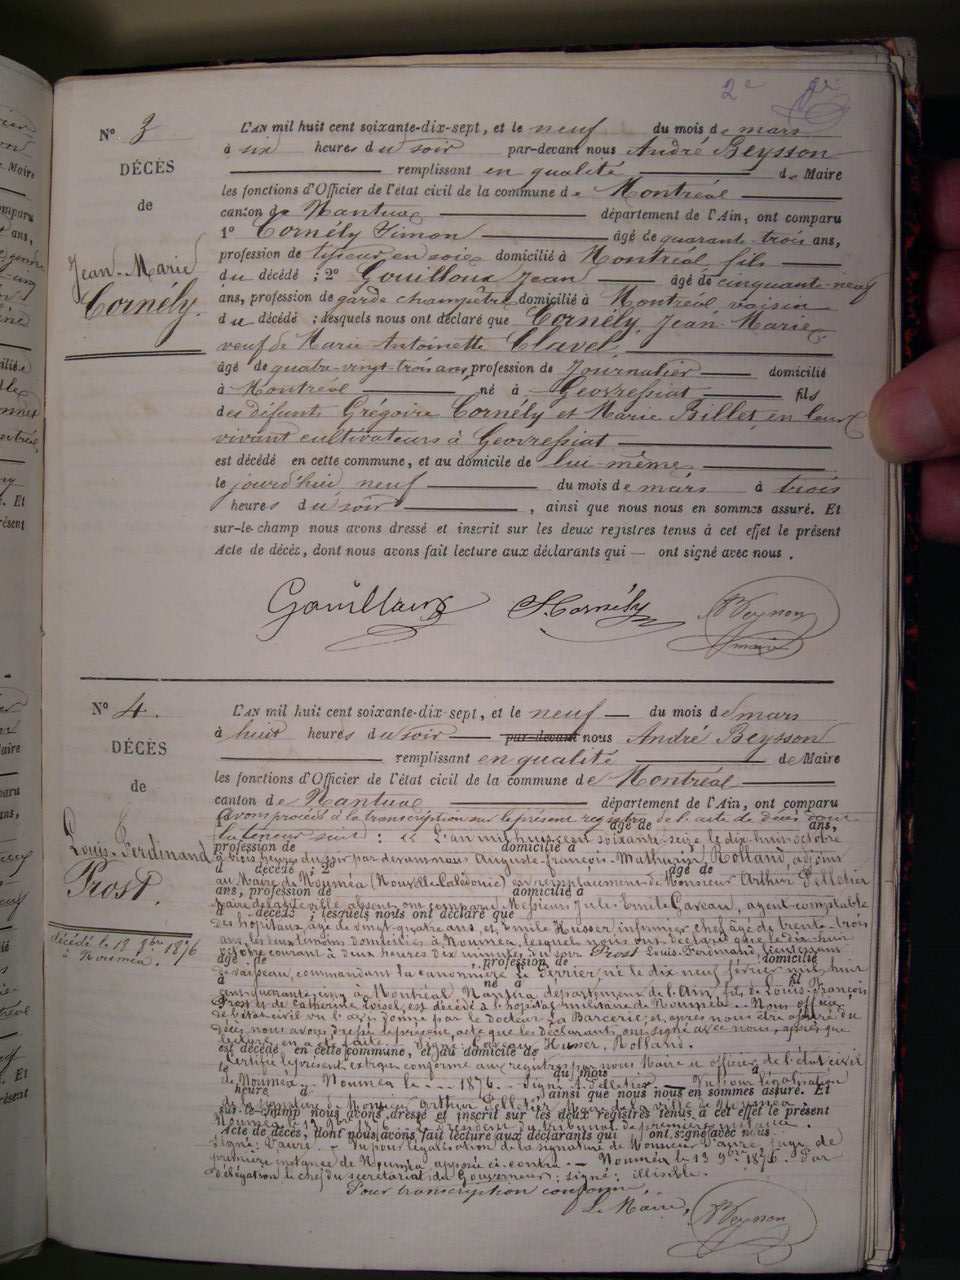 2e
N° 3
DÉCÈS
de
Jean-Marie
Cornély.
L'AN mil huit cent soixante-dix-sept, et le neuf du mois de mars
à six heures du soir par-devant nous André Beysson
remplissant en qualité de Maire
les fonctions d'Officier de l'état civil de la commune de Montréal
canton de Nantua département de l'Ain, ont comparu
1° Cornély Simon âgé de quarante-trois ans,
profession de tisseur en soie domicilié à Montréal fils
du décédé ; 2° Gouilloux Jean âgé de cinquante-neuf
ans, profession de garde champêtre domicilié à Montréal voisin
du décédé ; lesquels nous ont déclaré que Cornély, Jean-Marie,
veuf de Marie Antoinette Clavel,
âgé de quatre-vingt-trois ans, profession de Journalier domicilié
à Montréal né à Geovressiat fils
des défunts Grégoire Cornély et Marie Billet, en leur
vivant cultivateurs à Geovressiat
est décédé en cette commune, et au domicile de lui-même
le jourd'hui neuf du mois de mars à trois
heures du soir , ainsi que nous nous en sommes assuré. Et
sur-le-champ nous avons dressé et inscrit sur les deux registres tenus à cet effet le présent
Acte de décès, dont nous avons fait lecture aux déclarants qui — ont signé avec nous.
Gouilloux S. Cornély Beysson
maire
N° 4.
DÉCÈS
de
Louis-Ferdinand
Prost.
décédé le 18 8bre 1876
à Nouméa.
L'AN mil huit cent soixante-dix-sept, et le neuf du mois de mars
à huit heures du soir par-devant nous André Beysson
remplissant en qualité de Maire
les fonctions d'Officier de l'état civil de la commune de Montréal
canton de Nantua département de l'Ain, ont comparu
avons procédé à la transcription sur le présent registre de l'acte de décès dont
la teneur suit : « L'an mil huit cent soixante-seize le dix-huit octobre
à trois heures du soir par devant nous Auguste-François-Mathurin Rolland, adjoint
au Maire de Nouméa (Nouvelle Calédonie) en remplacement de Monsieur Arthur Pelletier
Maire de la dite ville absent, ont comparu Messieurs Jules Emile Gaveau, agent comptable
des hôpitaux, âgé de vingt-quatre ans, et Emile Husser, infirmier chef âgé de trente-trois
ans, les deux témoins domiciliés à Nouméa, lesquels nous ont déclaré que le dix-huit
octobre courant à deux heures dix minutes du soir Prost Louis-Ferdinand, lieutenant
de vaisseau, commandant la canonnière le Cerrier, né le dix neuf février mil huit
cent quarante cinq à Montréal Nantua département de l'Ain, fils de Louis François
Prost et de Catherine Loisel, est décédé à l'hôpital militaire de Nouméa. — Nous officier
de l'état civil vu l'avis donné par le Docteur La Barcerie et après nous être assuré du
décès, nous avons dressé le présent acte que les déclarants ont signé avec nous, après que
lecture en a été faite. Signé Gaveau, Husser, Rolland.
Certifié le présent extrait conforme aux registres par nous Maire officier de l'état civil
de Nouméa. — Nouméa le — 1876. — Signé A. Pelletier. — Vu pour légalisation
de la signature de Monsieur Arthur Pelletier Maire de la ville de Nouméa
Nouméa le 13 9bre 1876. Le président du tribunal de première instance.
signé : — Vu pour légalisation de la signature de Monsieur juge de
première instance de Nouméa apposée ci-contre. — Nouméa le 13 9bre 1876. Par
délégation le chef du secrétariat du Gouverneur : signé : illisible.
Pour transcription conforme.
Le Maire, Beysson